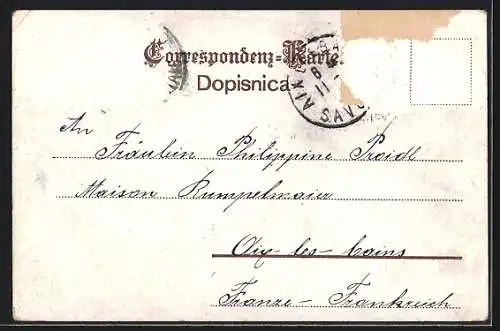 Correspondenz-Karte.
Dopisnica
AIX LES BA
8
11
SAVO
An
Fräulein Philippine Proidl
Maison Rumpelmaier
Aix-les-bains
France - Frankreich